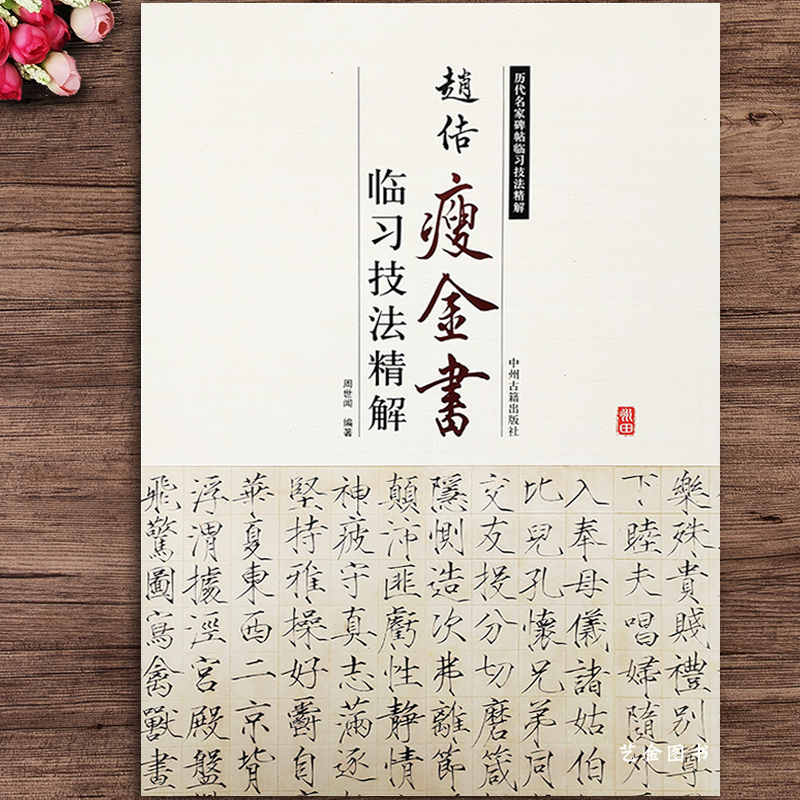 历代名家碑帖临习技法精解
趙佶
瘦金書
临习技法精解
周世闻 编著
中州古籍出版社
樂殊貴賤禮別尊
下睦夫唱婦隨外
入奉母儀諸姑伯
比兒孔懷兄弟同
交友投分切磨箴
隱惻造次弗離節
顛沛匪虧性靜情
神疲守真志滿逐
堅持雅操好爵自
華夏東西二京背
浮渭據涇宮殿盤
飛驚圖寫禽獸畫
艺金图书